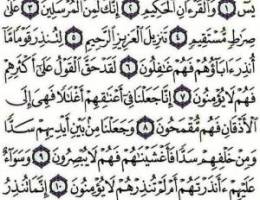 يسٓ ١ وَٱلْقُرْءَانِ ٱلْحَكِيمِ ٢ إِنَّكَ لَمِنَ ٱلْمُرْسَلِينَ ٣ عَلَىٰ
صِرَٰطٍ مُّسْتَقِيمٍ ٤ تَنزِيلَ ٱلْعَزِيزِ ٱلرَّحِيمِ ٥ لِتُنذِرَ قَوْمًا مَّآ
أُنذِرَ ءَابَآؤُهُمْ فَهُمْ غَٰفِلُونَ ٦ لَقَدْ حَقَّ ٱلْقَوْلُ عَلَىٰٓ أَكْثَرِهِمْ
فَهُمْ لَا يُؤْمِنُونَ ٧ إِنَّا جَعَلْنَا فِىٓ أَعْنَٰقِهِمْ أَغْلَٰلًا فَهِىَ إِلَى
ٱلْأَذْقَانِ فَهُم مُّقْمَحُونَ ٨ وَجَعَلْنَا مِنۢ بَيْنِ أَيْدِيهِمْ سَدًّا
وَمِنْ خَلْفِهِمْ سَدًّا فَأَغْشَيْنَٰهُمْ فَهُمْ لَا يُبْصِرُونَ ٩ وَسَوَآءٌ
عَلَيْهِمْ ءَأَنذَرْتَهُمْ أَمْ لَمْ تُنذِرْهُمْ لَا يُؤْمِنُونَ ١٠ إِنَّمَا تُنذِرُ